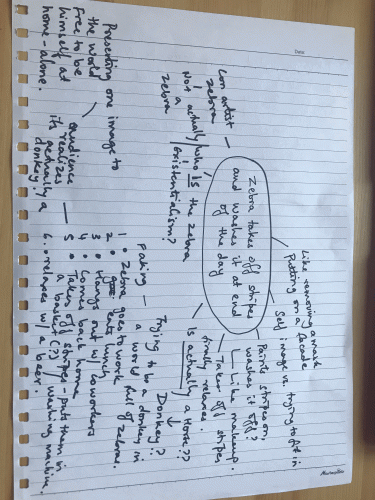 Date:
Like removing a mask
Putting on a facade
Self image vs. trying to fit in
Con artist
zebra
Not actually
a
zebra
Who IS the zebra
existentialism?
Zebra takes off stripes
and washes it at end
of the day
Paints stripes on,
washes it off?
Like makeup.
Takes off stripes
finally relaxes.
Is actually a Horse??
Donkey?
Presenting one image to
the world
Free to be
himself at
home-alone.
audience
realizes
it's actually a
donkey!
Faking —
Trying to be a donkey in
a world full of zebras.
1 • Zebra goes to work
2 • eats lunch
3 • Hangs out w/ coworkers
4 • Comes back home
5 • Takes off stripes - puts them in
a basket (?) / washing machine.
6. • relaxes w/ a beer.